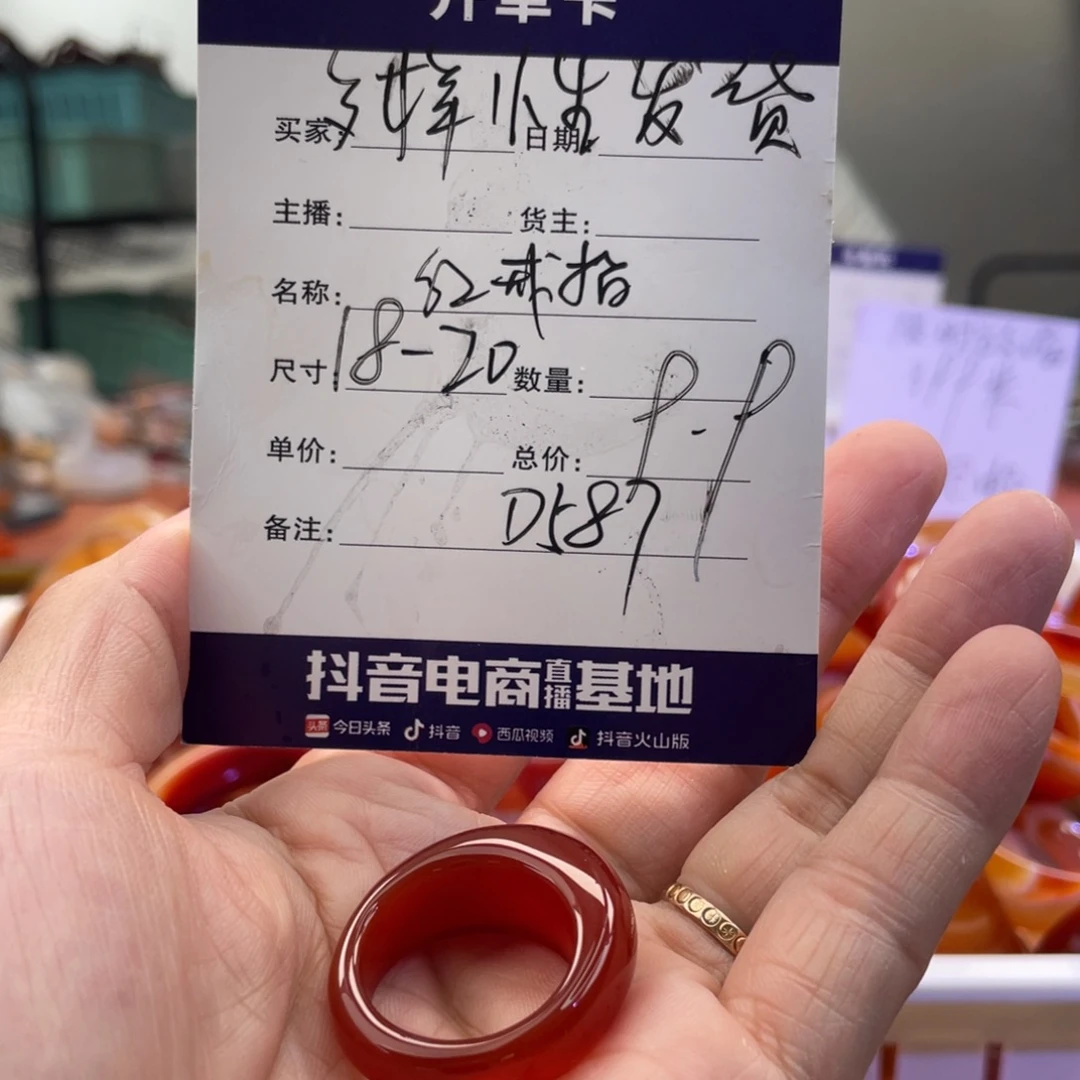 开单卡
多样性发货
买家： 日期：
主播： 货主：
名称： 红戒指
尺寸： 18-20 数量：
9.9
单价： 总价：
备注： D587
抖音电商直播基地
头条 今日头条 抖音 西瓜视频 抖音火山版